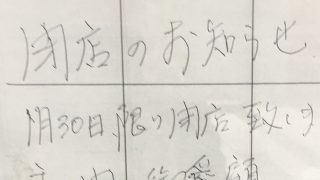 閉店のお知らせ
月30日限り閉店致しま
愛顧